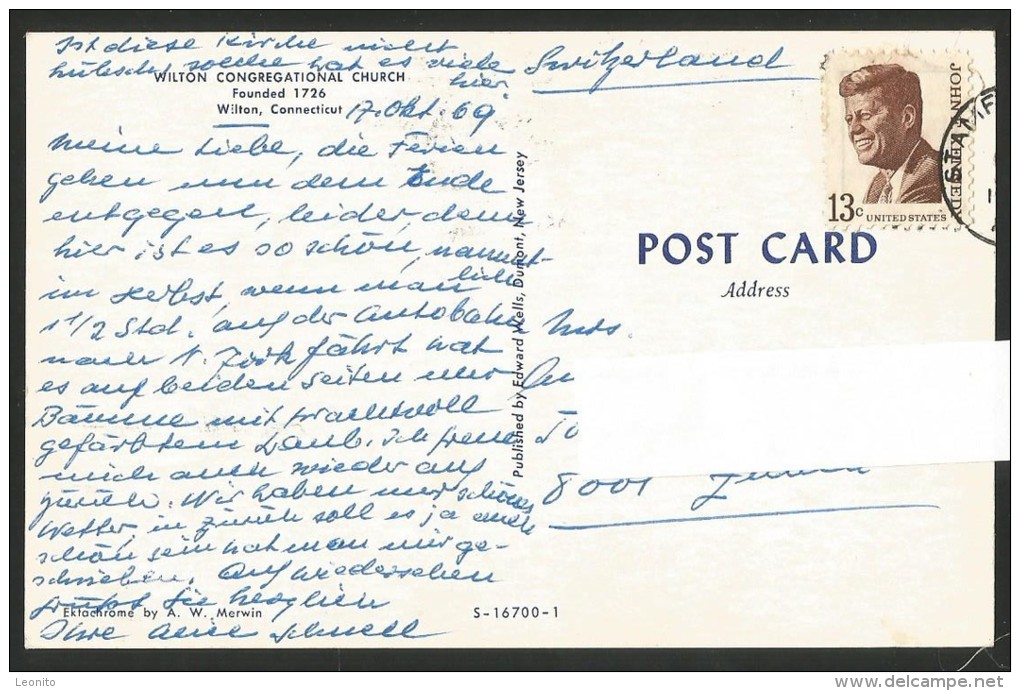 Ist diese Kirche nicht
hübsch, solche hat es viele
hier.
WILTON CONGREGATIONAL CHURCH
Founded 1726
Wilton, Connecticut
17. Okt. 69
Meine Liebe, die Ferien
gehen nun dem Ende
entgegen, leider, denn
hier ist es so schön, nament-
lich
im Herbst, wenn man
1 1/2 Std. auf der Autobahn
nach N. York fährt hat
es auf beiden Seiten nur
Bäume mit prachtvoll
gefärbtem Laub. Ich freue
mich auch wieder auf
zurück. Wir haben nur schönes
Wetter, in Zürich soll es ja auch
schön sein hat man mir ge-
schrieben. Auf Wiedersehen
grüsst Sie herzlich
Ektachrome by A. W. Merwin
Ihre Schnell
S-16700-1
Published by Edward Wells, Dumont, New Jersey
Switzerland
JOHN F. KENNEDY
13c UNITED STATES
STAMF
POST CARD
Address
Mrs.
8001 Zürich
Leonito
delcampe.net